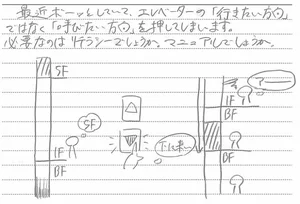 最近ボーッとしていて、エレベーターの「行きたい方向」
ではなく「呼びたい方向」を押してしまいます。
必要なのはリテラシーでしょうか。マニュアルでしょうか。
5F
5F
1F
BF
下に来ー
アー
1F
BF
BF